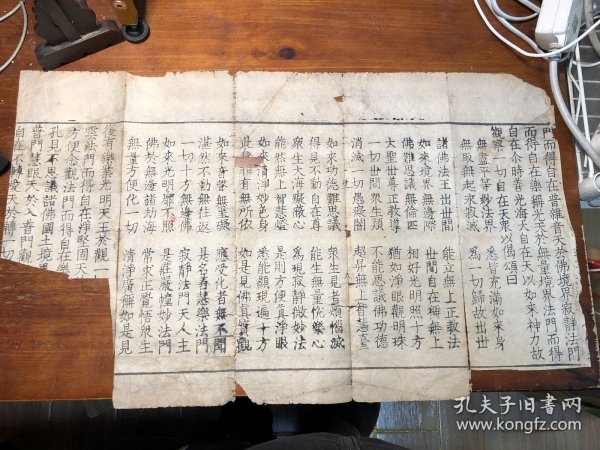 門而得自在普雜音天於佛境界寂靜法門
而得自在樂稱光天於無量境界法門而得
自在介時善光海大自在天以如來神力故
觀察一切自在天衆以偈頌曰
無盡平等妙法界 悉皆充滿如來身
無取無起永寂滅 爲一切歸故出世
諸佛法王出世間 能立無上正教法
如來境界無邊際 世間自在稱無上
佛難思議無倫匹 相好光明照十方
大聖世尊正教導 猶如淨眼觀明珠
一切世間衆生類 不能思議佛功德
消滅一切愚癡闇 超昇無上智慧臺
如來功德難思議 衆生見者煩惱滅
得見不動自在尊 能生無量悅樂心
衆生大海癡蔽心 爲現寂靜微妙法
能然無上智慧燈 是則方便眞淨眼
如來清淨妙色身 悉能顯現遍十方
此身非有無所依 如是見佛眞實觀
如來音聲無罣礙 應受化者無不聞
湛然不動無往返 是名善慧樂法門
一切十方無邊佛 寂靜法門天人主
如來光明靡不照 是莊嚴幢妙法門
佛於無邊諸劫海 常求正覺悟衆生
無量方便化一切 清淨廣稱如是見
復有樂業光明天王於觀一
雲法門而得自在淨堅固天
方便念觀法門而得自在樂
孔見不思議諸佛國土境界
普門慧眼天於入普門觀
自在不轉愛天於轉一切
孔夫子旧書网
www.kongfz.com